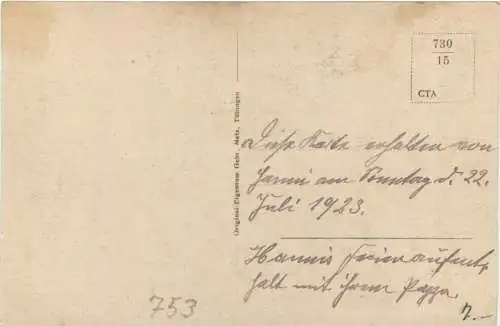 730
15
CTA
Original-Eigentum Gebr. Metz, Tübingen
Diese Karte erhalten von
Hanni am Sonntag d. 22.
Juli 1923.
Hannis Ferienaufent-
halt mit ihrem Papa.
753